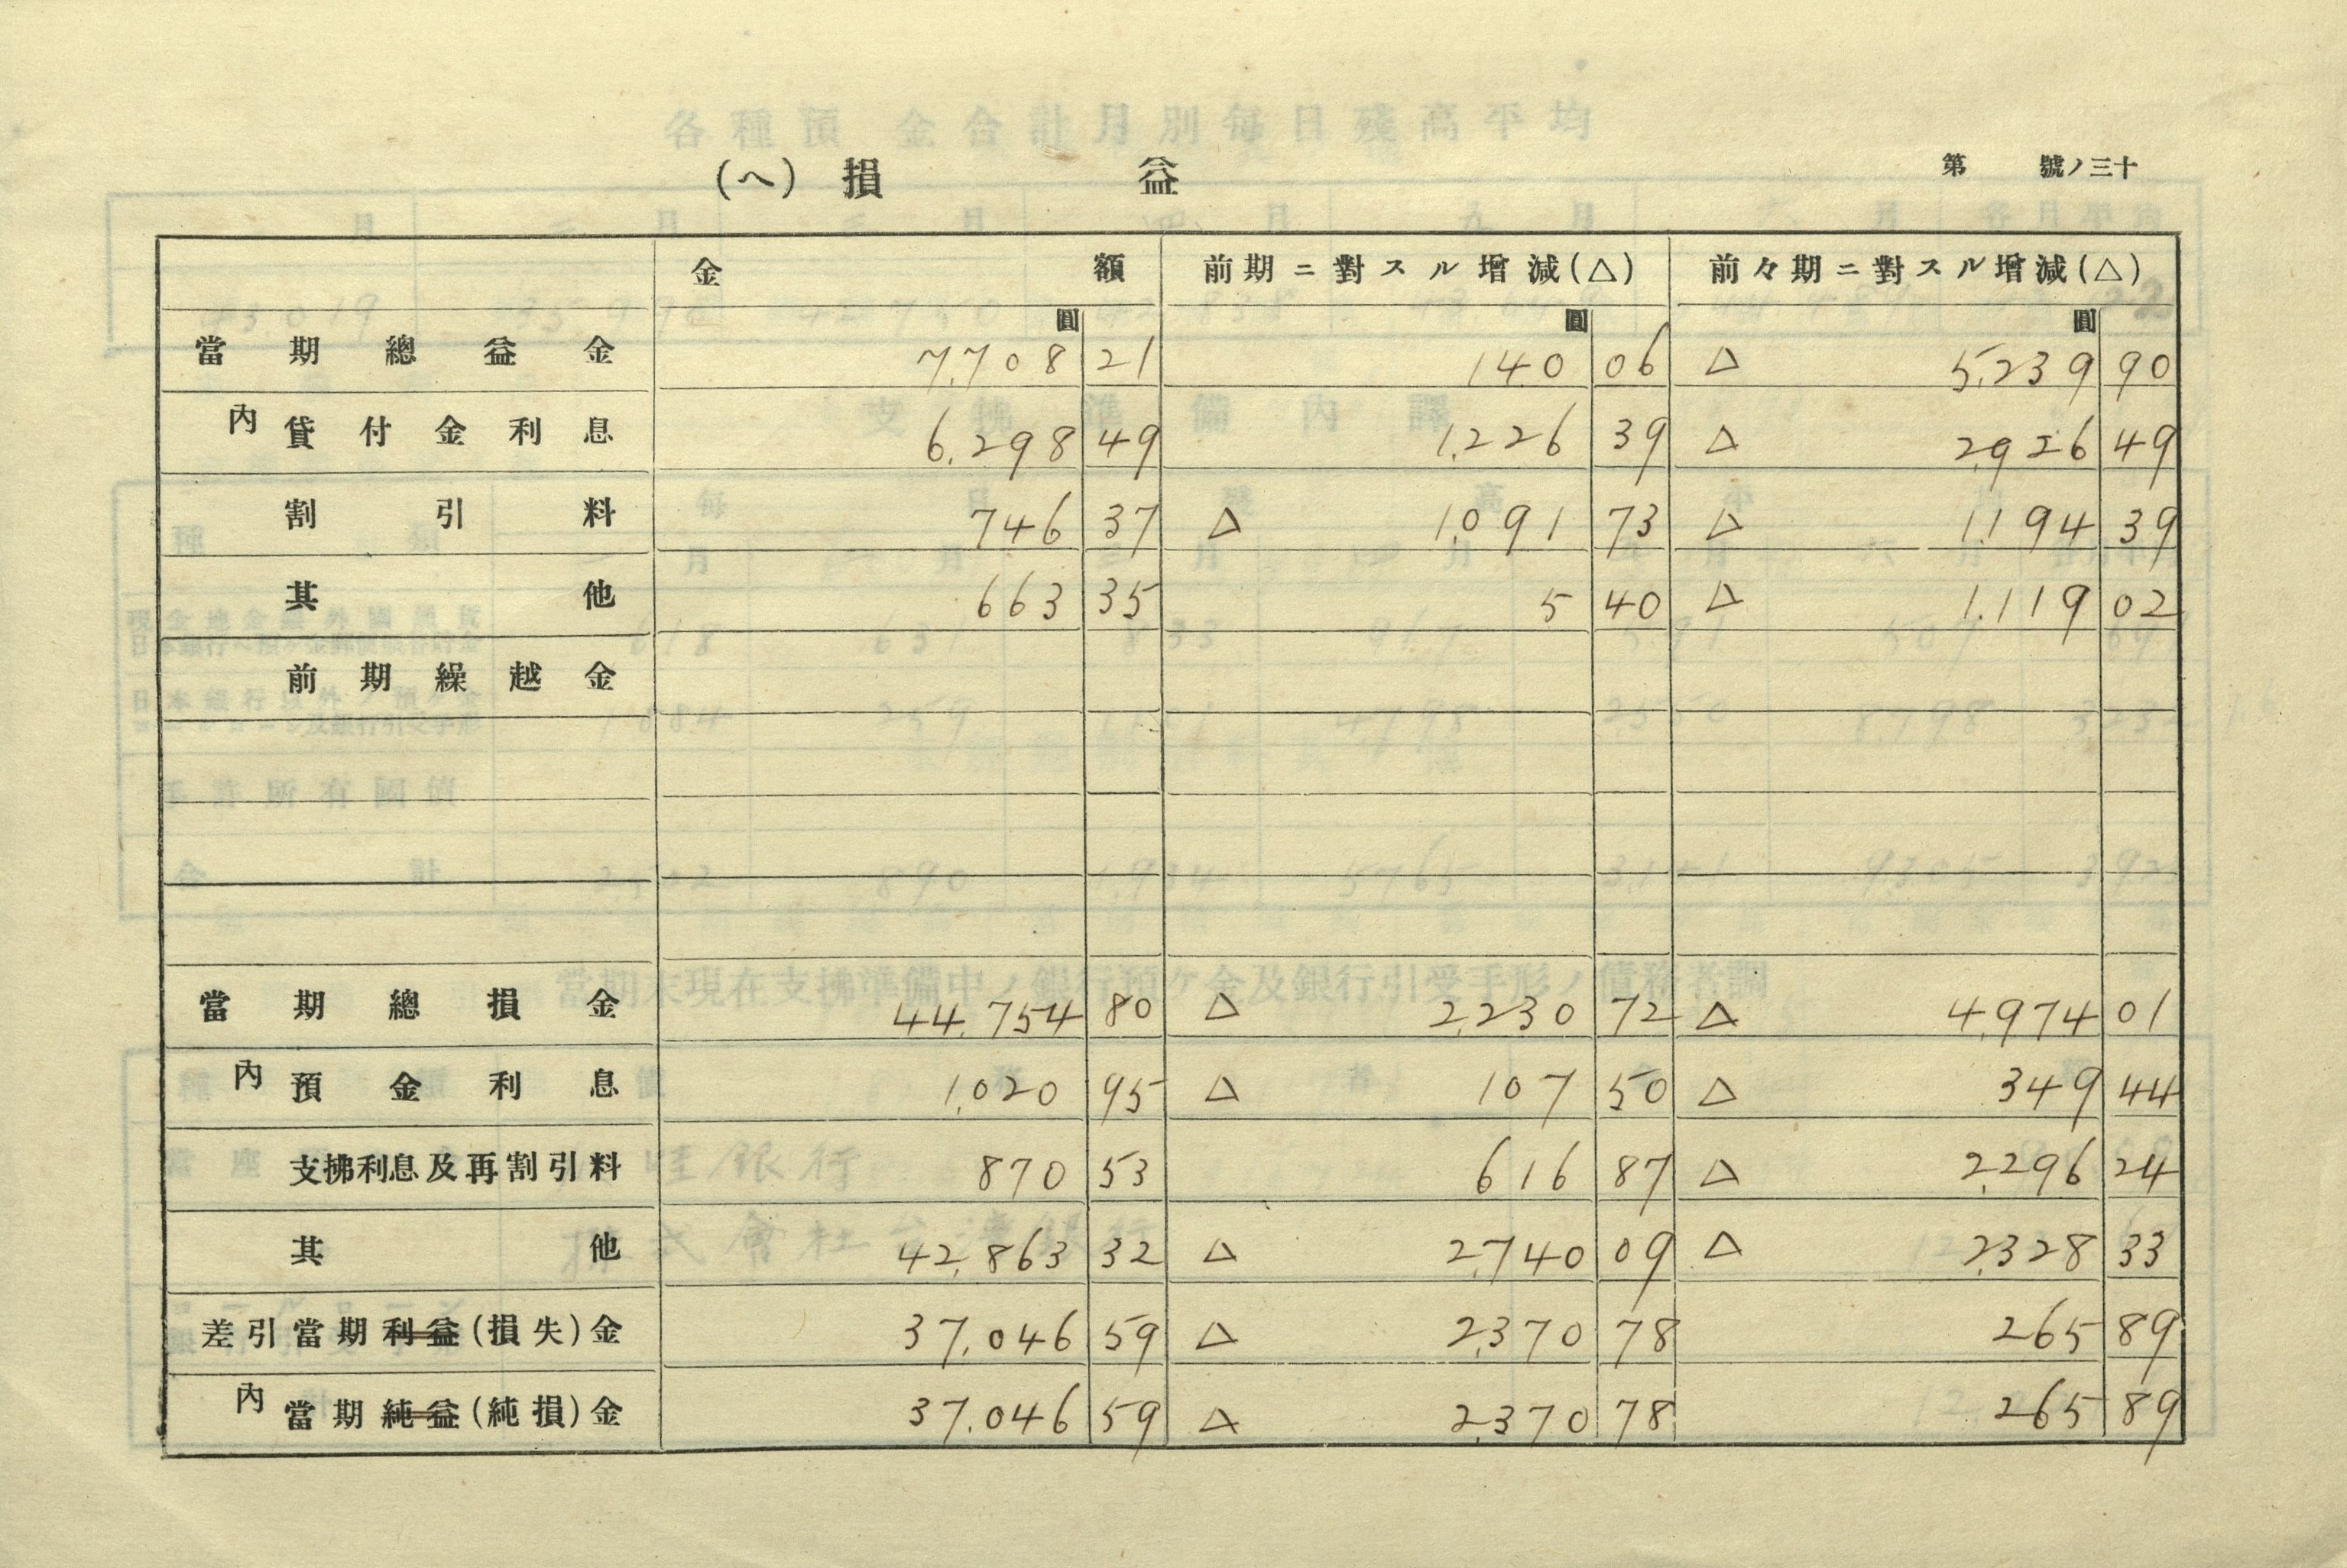 (ヘ) 損 益
第 號ノ三十
金 額 前期ニ對スル增減(△) 前々期ニ對スル增減(△)
圓 圓 圓
當期總益金 7,708 21 140 06 △ 5,239 90
內 貸付金利息 6,298 49 1,226 39 △ 2,926 49
割引料 746 37 △ 1,091 73 △ 1,194 39
其他 663 35 5 40 △ 1,119 02
前期繰越金
當期總損金 44,754 80 △ 2,230 72 △ 4,974 01
內 預金利息 1,020 95 △ 107 50 △ 349 44
支拂利息及再割引料 870 53 616 87 △ 2,296 24
其他 42,863 32 △ 2,740 09 △ 2,328 33
差引當期利益(損失)金 37,046 59 △ 2,370 78 265 89
內 當期純益(純損)金 37,046 59 △ 2,370 78 265 89